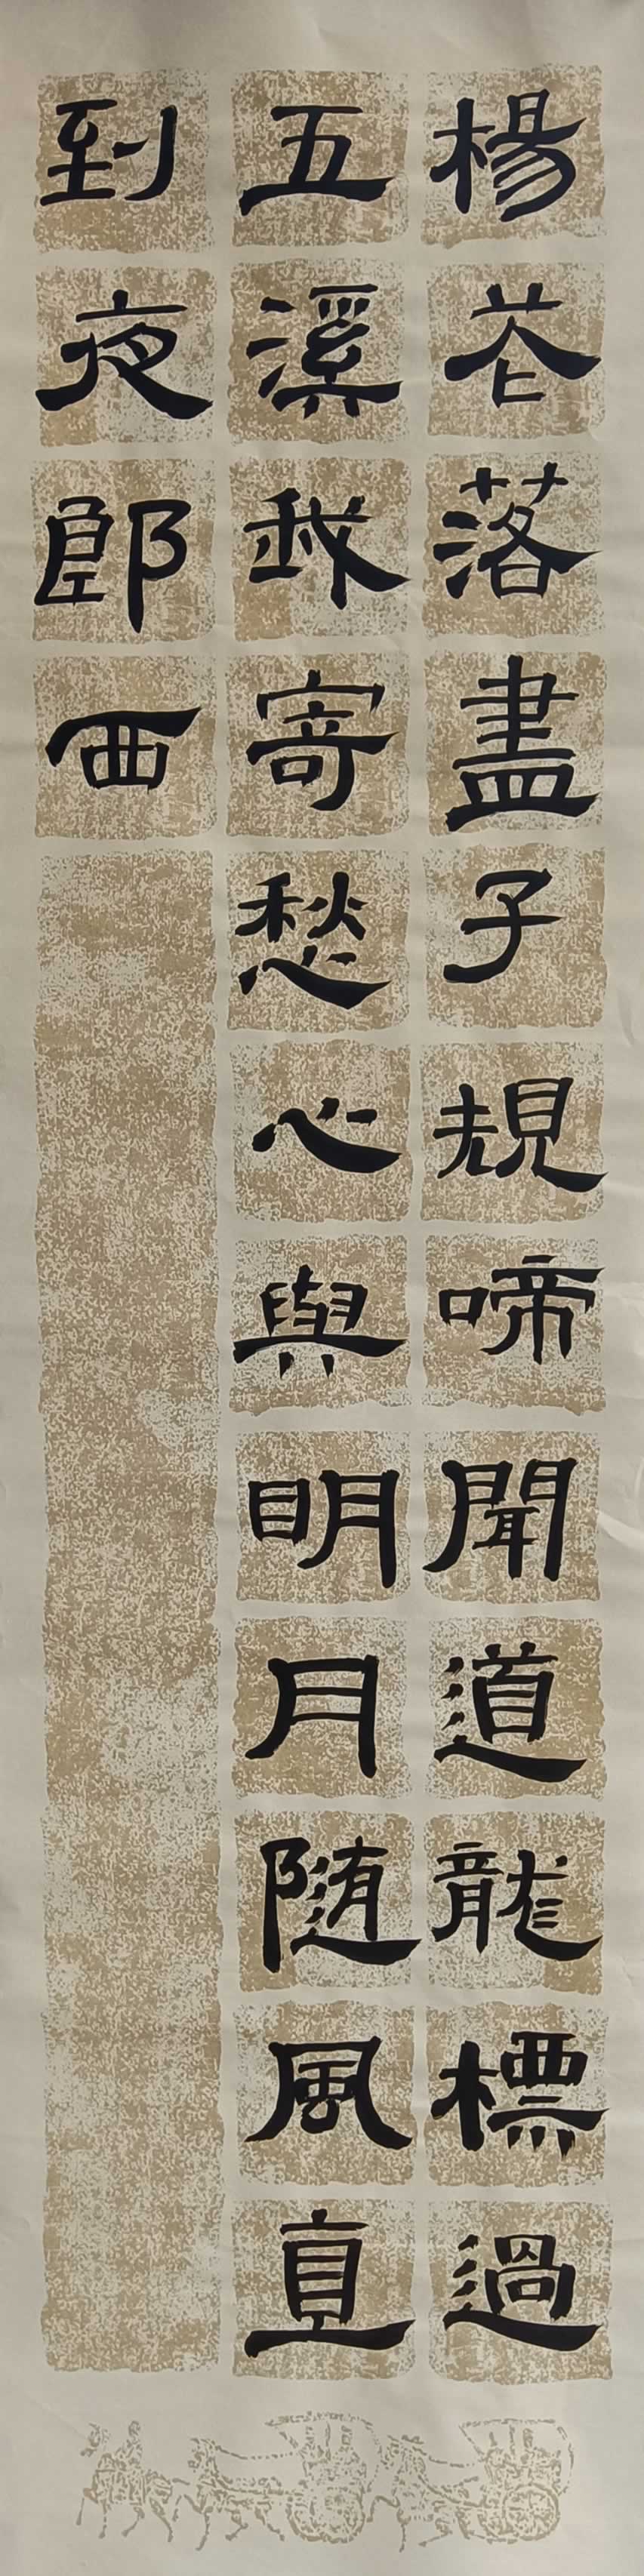 楊花落盡子規啼聞道龍標過
五溪我寄愁心與明月隨風直
到夜郎西